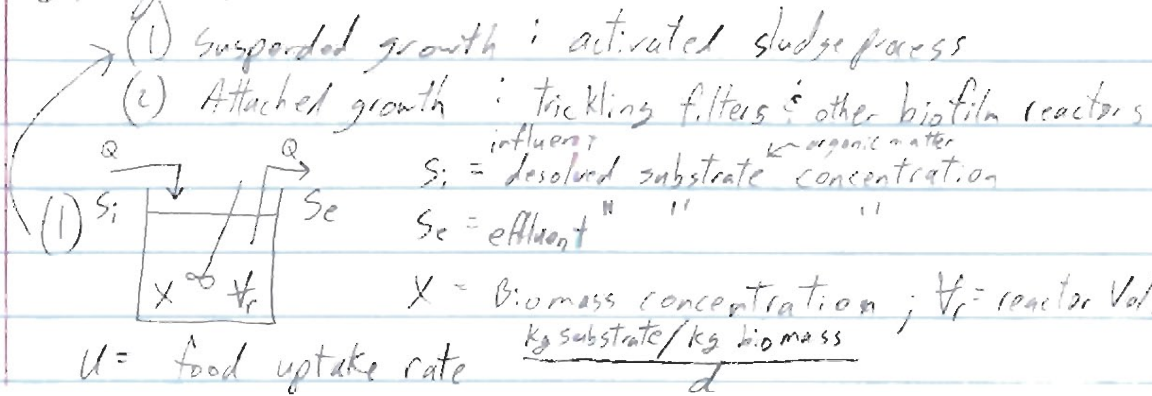 (1) Suspended growth : activated sludge process
(2) Attached growth : trickling filters & other biofilm reactors
influent
organic matter
Q Q
Si = desolved substrate concentration
(1) Si Se
Se = effluent " " "
X ∀r
X = Biomass concentration ; ∀r = reactor Vol
U = food uptake rate kg substrate/kg biomass
d